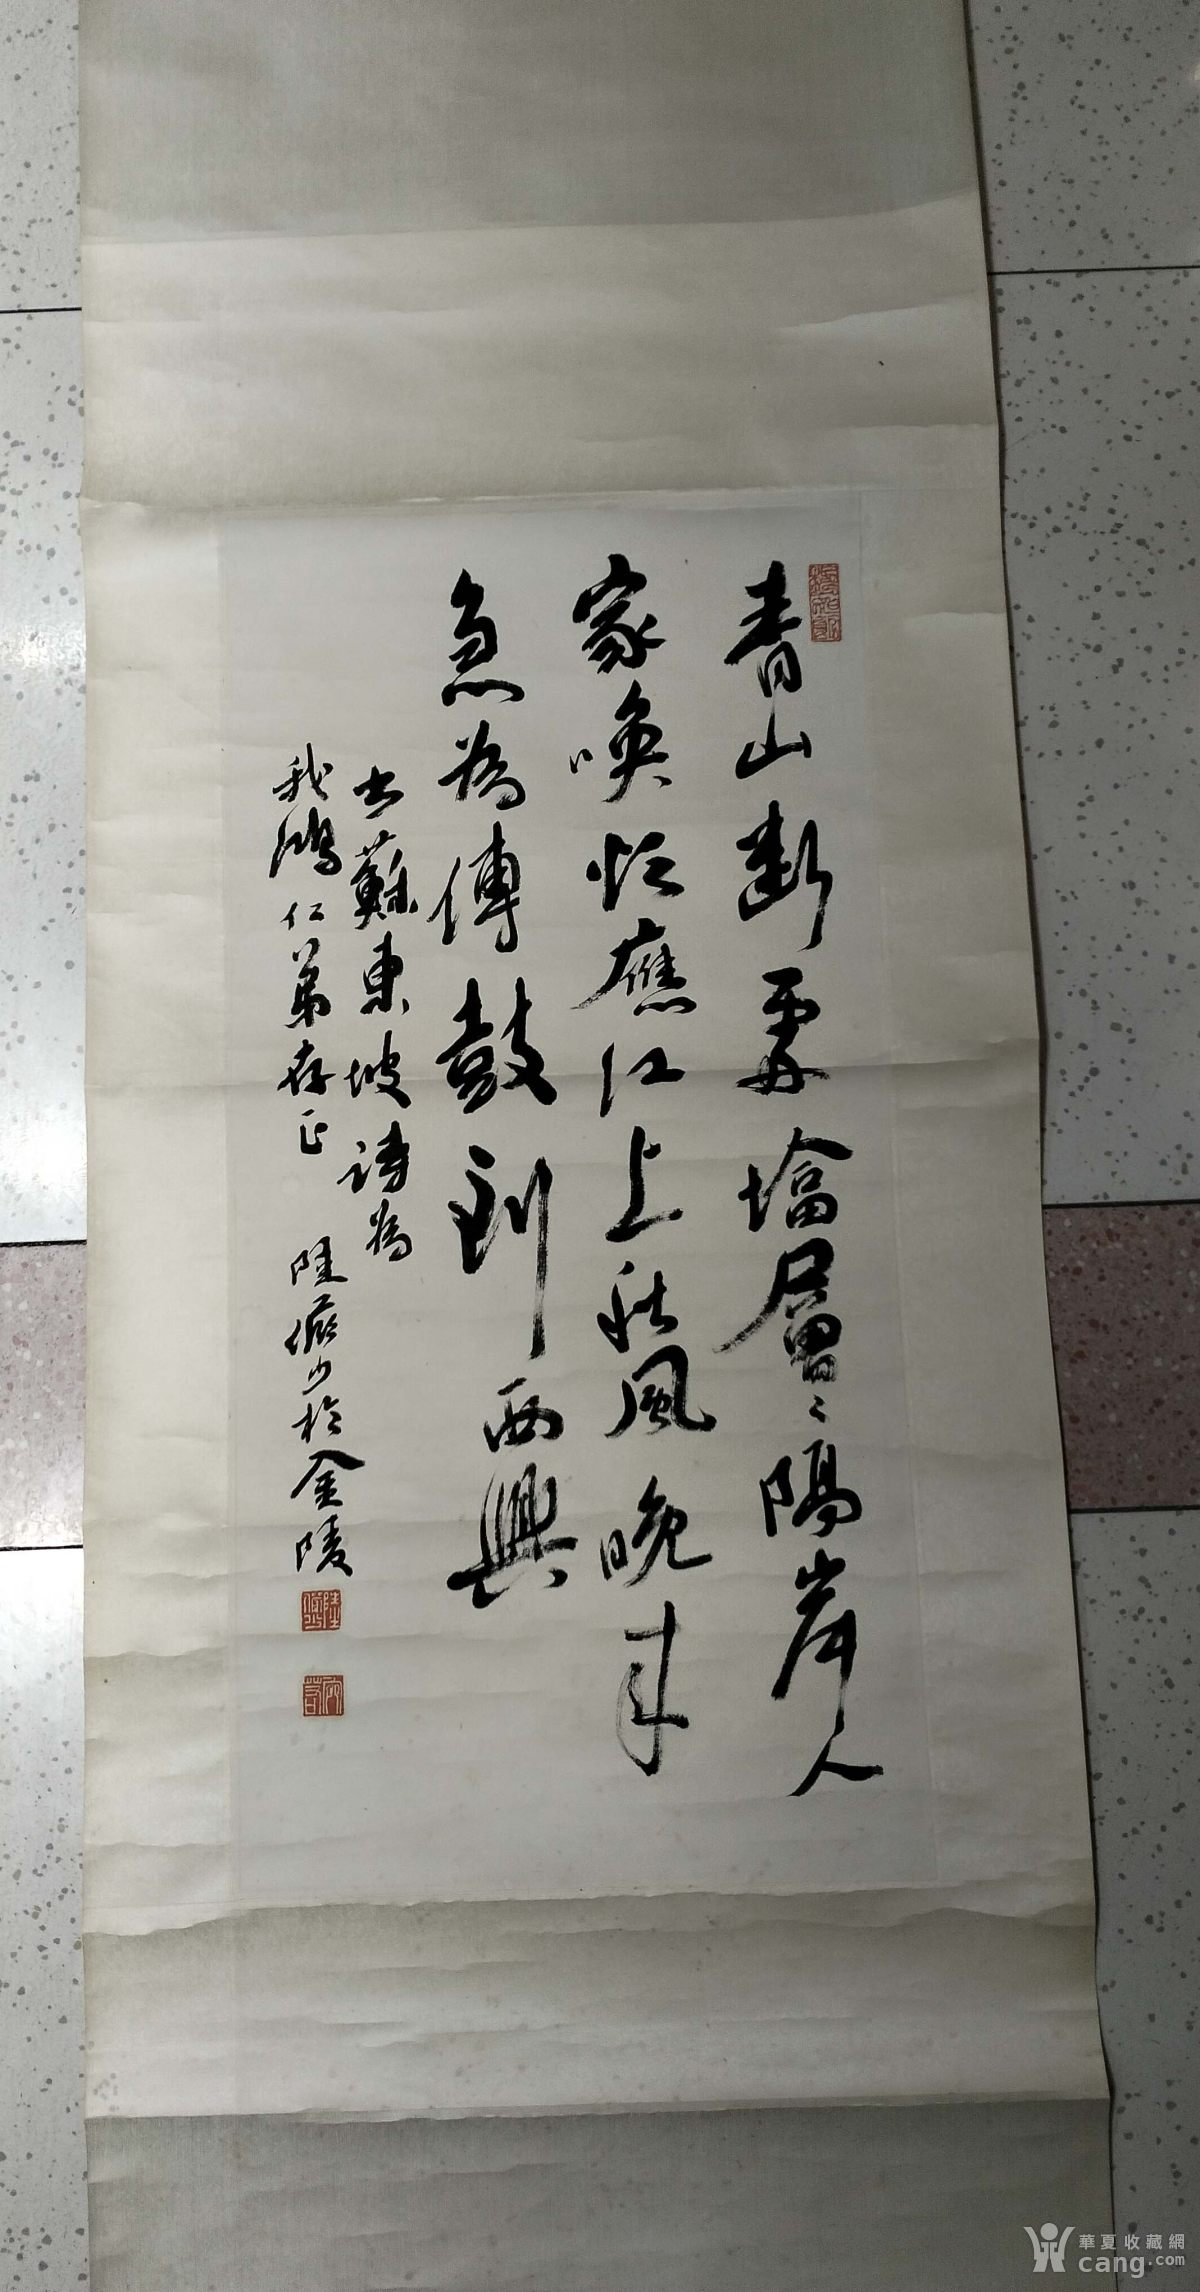 青山斷處塔層〻隔岸人
家喚欲應江上秋風晚來
急為傳鼓到西興
書蘇東坡詩為
我鴻仁弟存正 陸儼少於金陵
華夏收藏網
cang.com